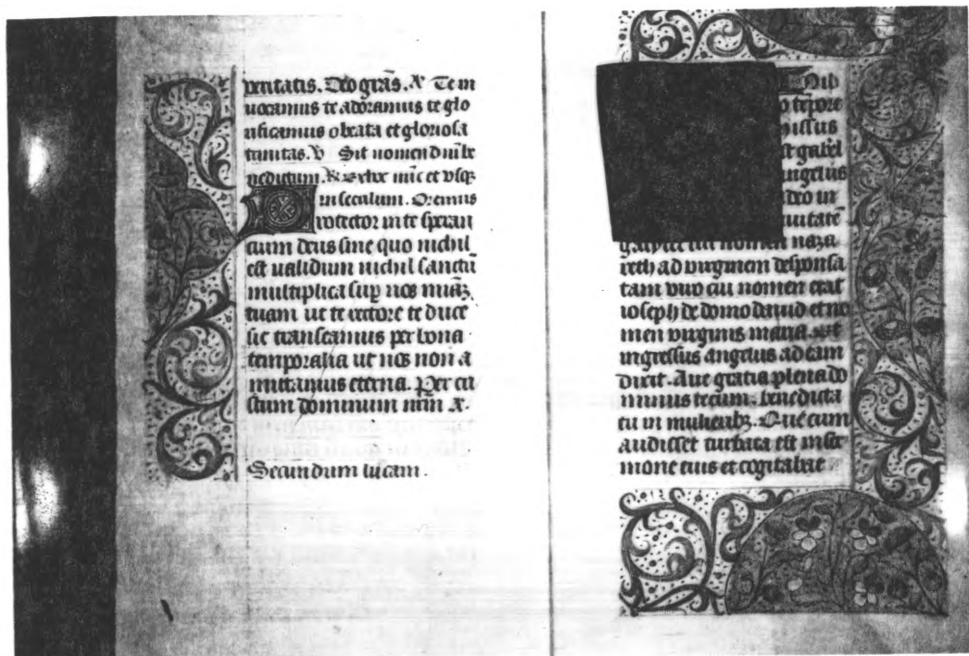 veritatis. Deo gr̃as. V̸ Te in
uocamus te adoramus te glo
rificamus o beata et gloriosa
trinitas. V̸ Sit nomen dñi be
nedictum. R̸ Ex hoc nũc et vsqꝫ
in seculum. Oremus
Protector in te speran
cium deus sine quo nichil
est ualidum nichil sanctũ
multiplica suꝑ nos miãꝫ
tuam ut te rectore te duce
sic transeamus per bona
temporalia ut nos non a
mittamus eterna. Per cri
stum dominum nrm̃
Secundum lucam.
o tẽpore
missus
est gabriel
angelus
a deo in
ciuitatẽ
galylee cui nomen naza
reth ad uirginem desponsa
tam viro cui nomen erat
ioseph de domo dauid et no
men virginis maria. Et
ingressus angelus ad eam
dixit. Aue gratia plena do
minus tecum. benedicta
tu in mulieribꝫ. Que cum
audisset turbata est in ser
mone eius et cogitabat